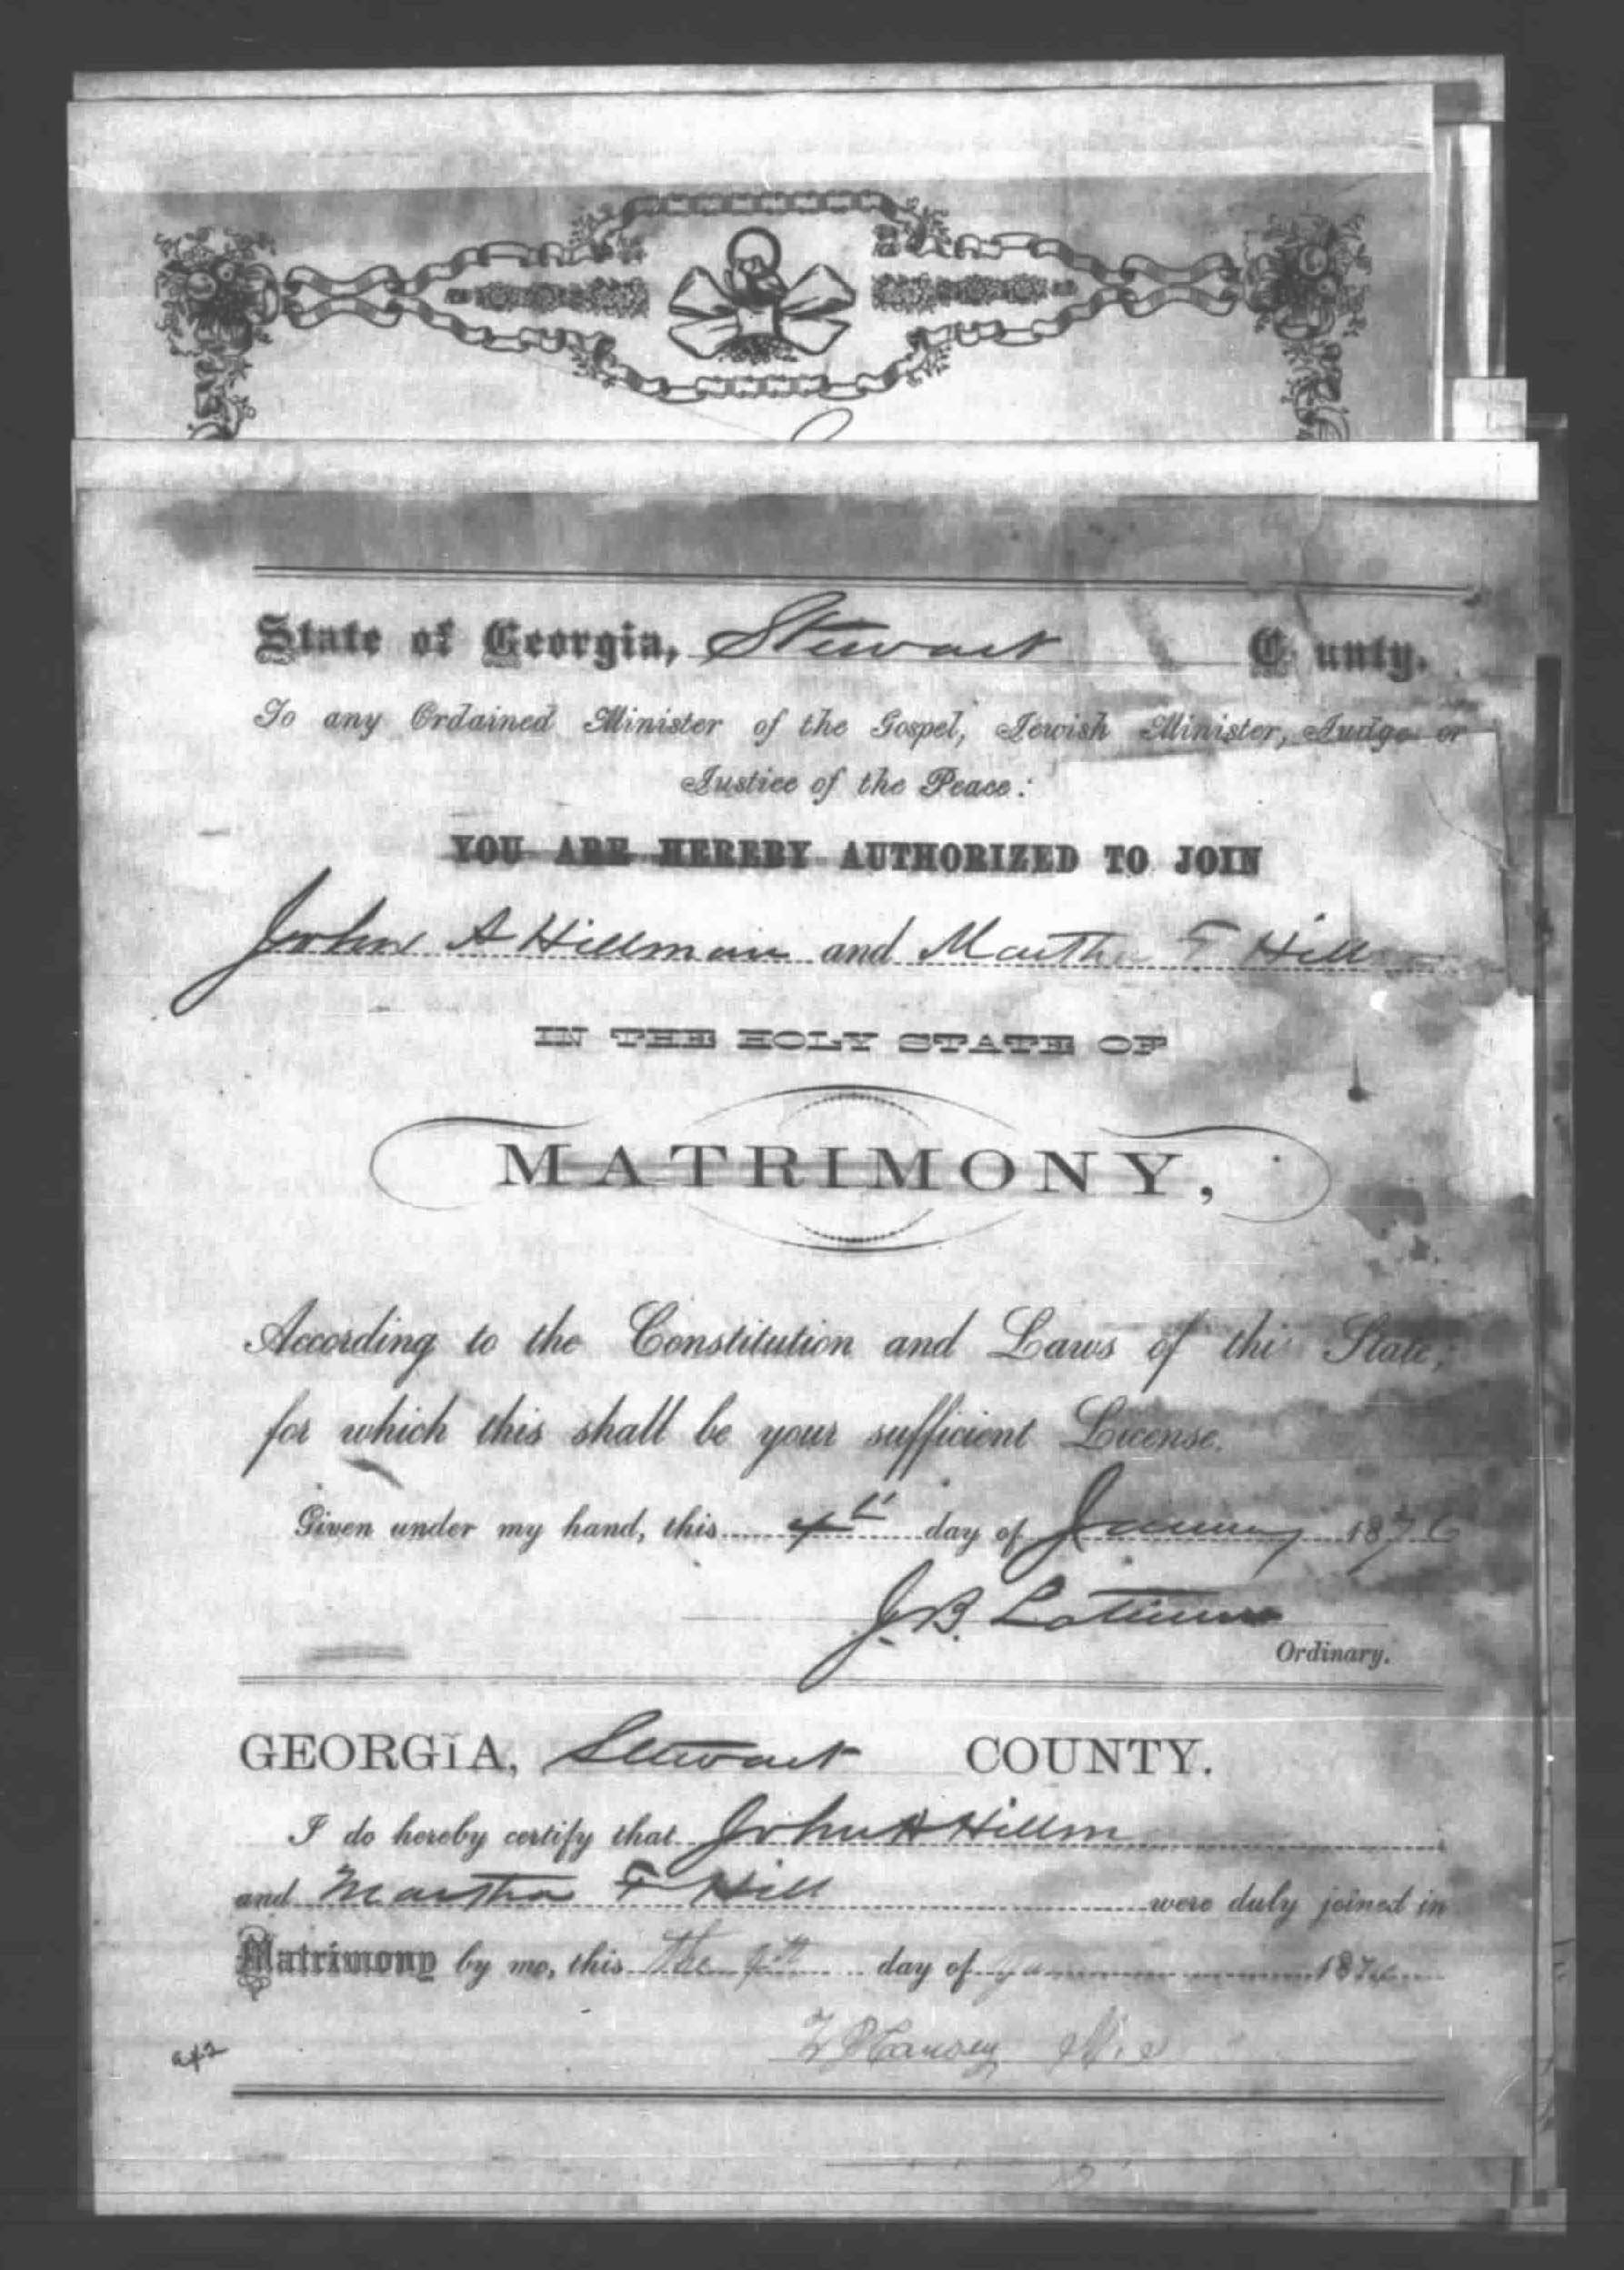 State of Georgia, Stewart C unty.
To any Ordained Minister of the Gospel, Jewish Minister, Judge or
Justice of the Peace:
YOU ARE HEREBY AUTHORIZED TO JOIN
John A Hillman and Martha F Hill
IN THE HOLY STATE OF
MATRIMONY,
According to the Constitution and Laws of this State,
for which this shall be your sufficient License.
Given under my hand, this 4th day of January 1876
J. B. Latimer
Ordinary.
GEORGIA, Stewart COUNTY.
I do hereby certify that John A Hillm
and Martha F Hill were duly joined in
Matrimony by me, this the day of Jan 187